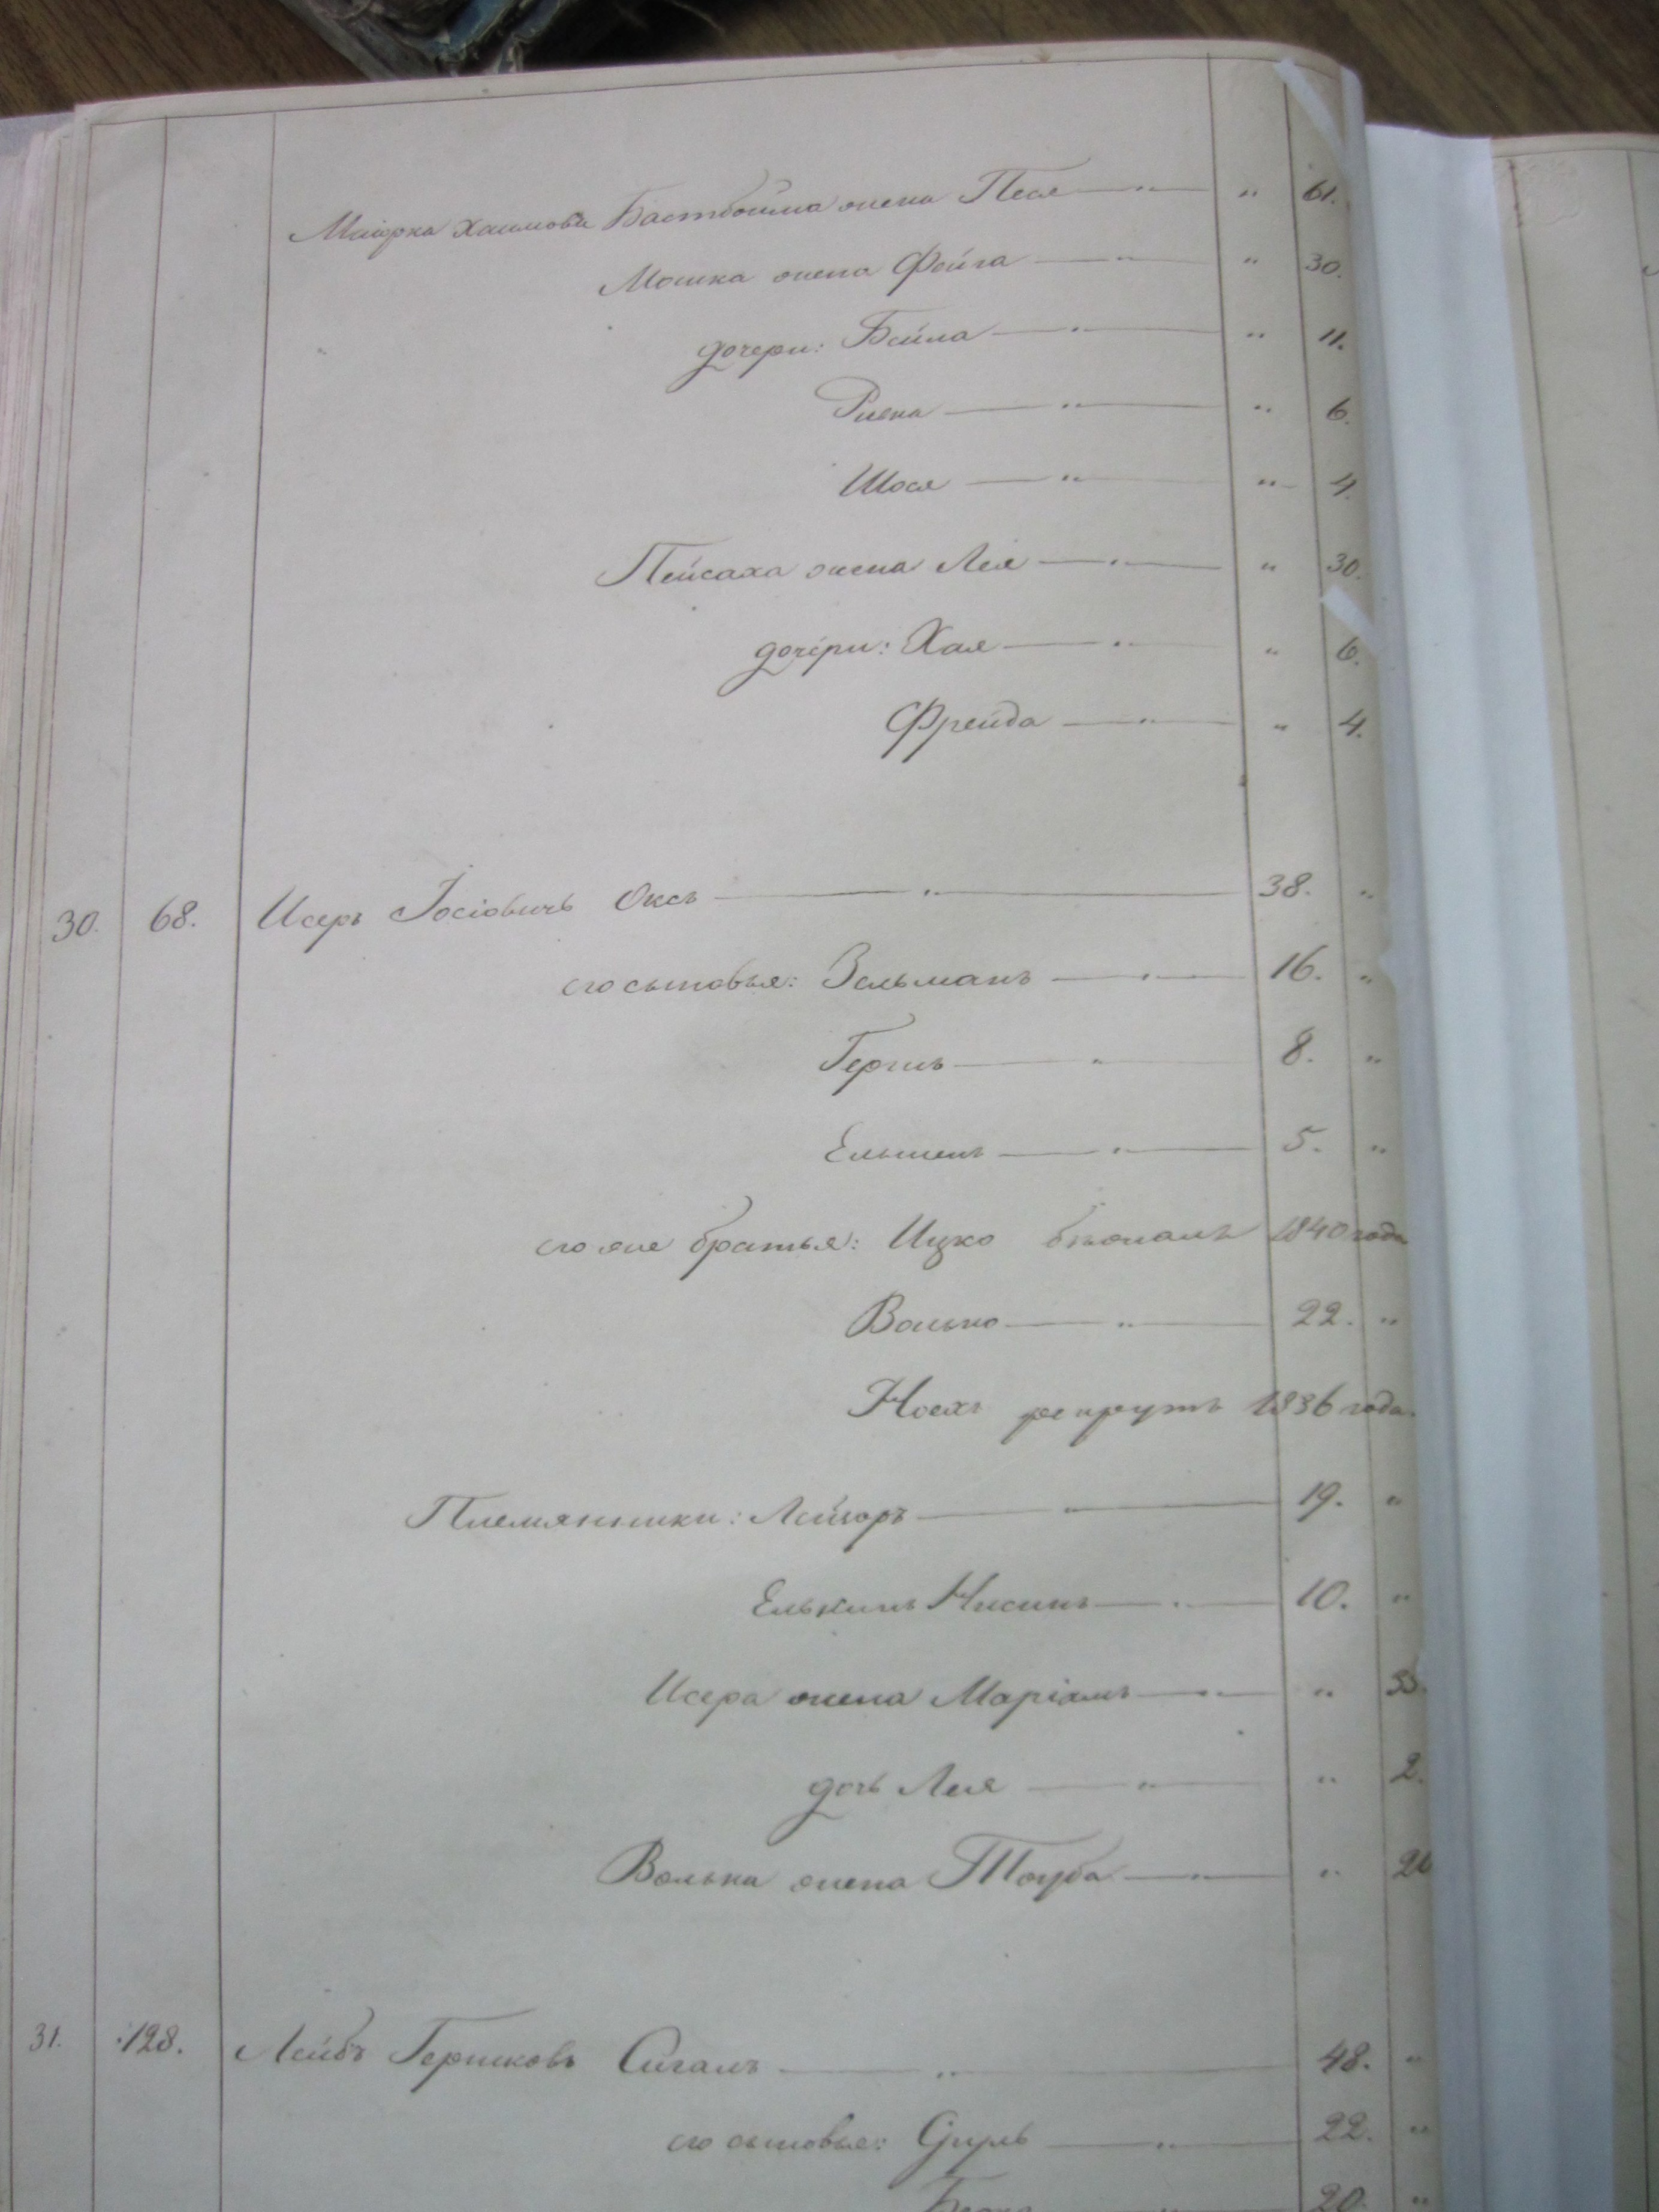 Маіорка Хаимова Бастбойма жена Песя — " — " 61.
Мошка жена Фейга — " — " 30.
дочери: Бейла — " — " 11.
Ривка — " — " 6.
Шося — " — " 4.
Пейсаха жена Лея — " — " 30.
дочери: Хая — " — " 6.
Фрейда — " — " 4.
30. 68. Исеръ Іосіовичъ Оксъ — " — 38. "
его сыновья: Зельманъ — " — 16. "
Гершъ — " — 8. "
— " — 5. "
его же братья: Ицко бежалъ 1840 года
Волько — " — 22. "
Ноехъ рекрутъ 1836 года.
Племянники: Лейзоръ — " — 19. "
Елькинъ Нисинъ — " — 10. "
Исера жена Маріамъ — " — " 33.
дочь Лея — " — " 2.
Волька жена Тоуба — " — " 20
31. 128. Лейбъ Гершковъ Сигалъ — " — 48. "
его сыновья: Сруль — " — 22. "
20. "